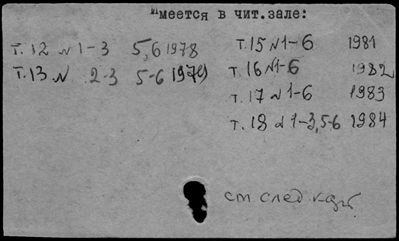 Имеется в чит.зале:
т.12 № 1-3 5,6 1978
т.13 № 2-3 5-6 1979
т.15 №1-6 1981
т.16 №1-6 1982
т.17 №1-6 1983
т.18 № 1-3,5-6 1984
см след карт.